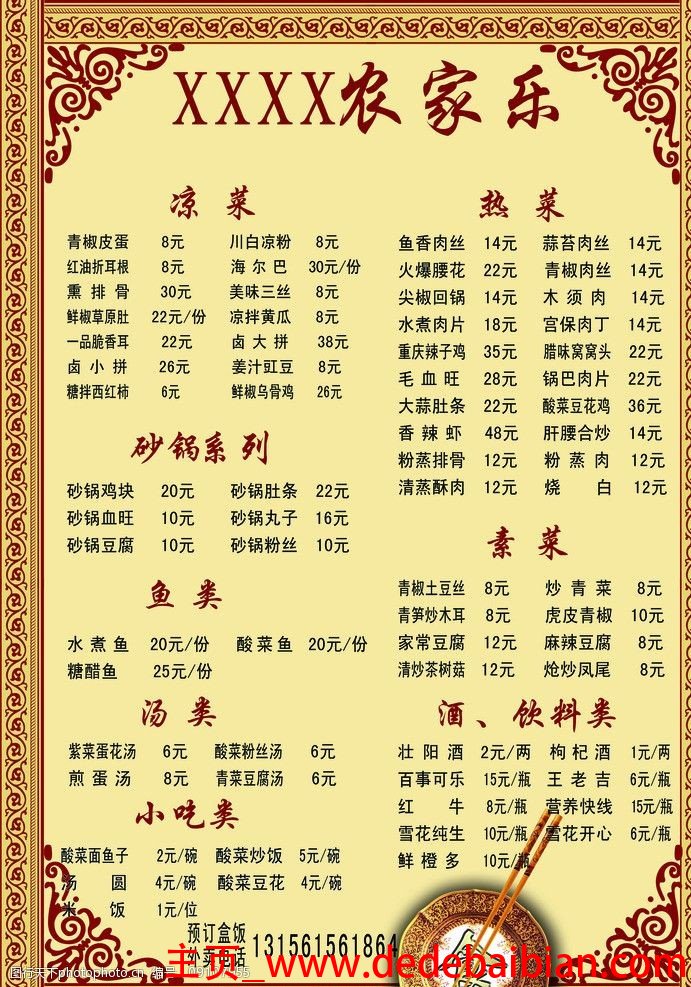 XXXX农家乐
凉菜
青椒皮蛋 8元 川白凉粉 8元
红油折耳根 8元 海尔巴 30元/份
熏排骨 30元 美味三丝 8元
鲜椒草原肚 22元/份 凉拌黄瓜 8元
一品脆香耳 22元 卤大拼 38元
卤小拼 26元 姜汁豇豆 8元
糖拌西红柿 6元 鲜椒乌骨鸡 26元
砂锅系列
砂锅鸡块 20元 砂锅肚条 22元
砂锅血旺 10元 砂锅丸子 16元
砂锅豆腐 10元 砂锅粉丝 10元
鱼类
水煮鱼 20元/份 酸菜鱼 20元/份
糖醋鱼 25元/份
汤类
紫菜蛋花汤 6元 酸菜粉丝汤 6元
煎蛋汤 8元 青菜豆腐汤 6元
小吃类
酸菜面鱼子 2元/碗 酸菜炒饭 5元/碗
汤圆 4元/碗 酸菜豆花 4元/碗
米饭 1元/位
热菜
鱼香肉丝 14元 蒜苔肉丝 14元
火爆腰花 22元 青椒肉丝 14元
尖椒回锅 14元 木须肉 14元
水煮肉片 18元 宫保肉丁 14元
重庆辣子鸡 35元 腊味窝窝头 22元
毛血旺 28元 锅巴肉片 22元
大蒜肚条 22元 酸菜豆花鸡 36元
香辣虾 48元 肝腰合炒 14元
粉蒸排骨 12元 粉蒸肉 12元
清蒸酥肉 12元 烧白 12元
素菜
青椒土豆丝 8元 炒青菜 8元
青笋炒木耳 8元 虎皮青椒 10元
家常豆腐 12元 麻辣豆腐 8元
清炒茶树菇 12元 炝炒凤尾 8元
酒、饮料类
壮阳酒 2元/两 枸杞酒 1元/两
百事可乐 15元/瓶 王老吉 6元/瓶
红牛 8元/瓶 营养快线 15元/瓶
雪花纯生 10元/瓶 雪花开心 6元/瓶
鲜橙多 10元/瓶
预订盒饭
外卖电话 131561561864
主页_www.dedebaibian.com
图行天下photophoto.cn 编号